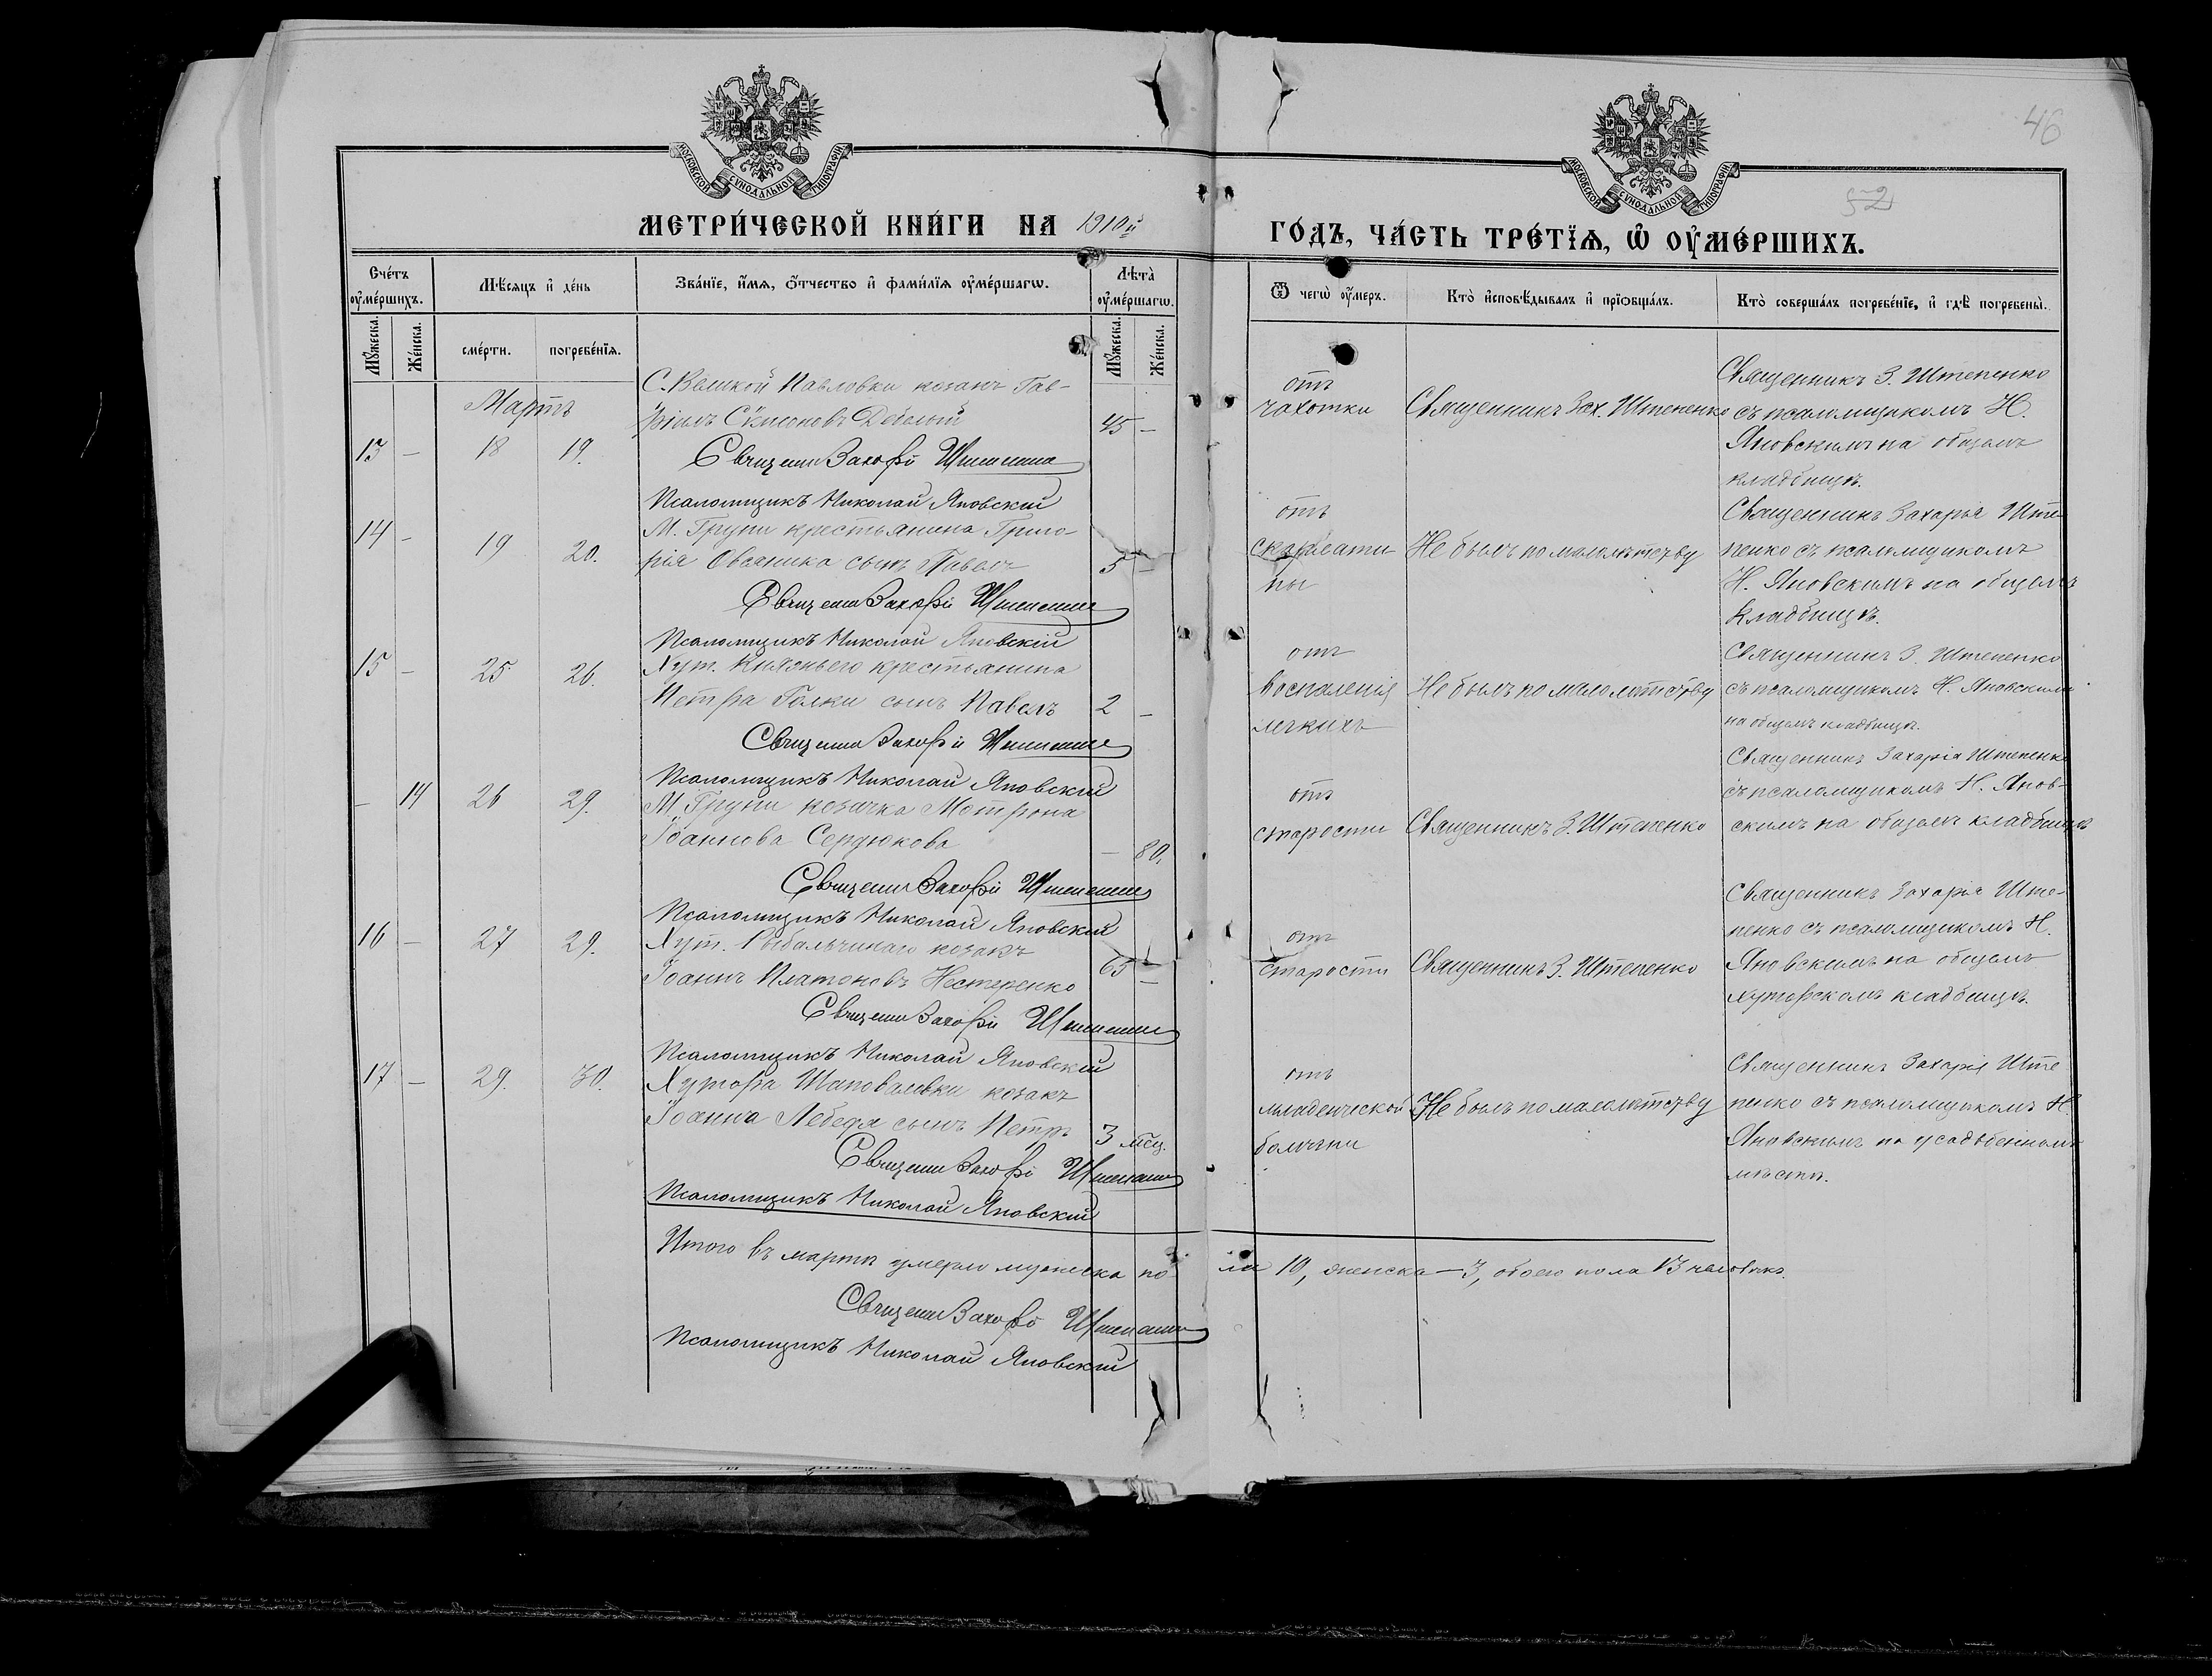 46
52
МОСКОВСКОЙ СУНОДАЛЬНОЙ ТИПОГРАФІИ
МОСКОВСКОЙ СУНОДАЛЬНОЙ ТИПОГРАФІИ
МЕТРИ́ЧЕСКОЙ КНИ́ГИ НА 1910й
ГО́ДЪ, ЧА́СТЬ ТРЕ́ТЇѦ, Ѡ ОУ҆МЕ́РШИХЪ.
Сче́тъ оу҆ме́ршихъ.
Мѣ́сяцъ и҆ де́нь
Зва́нїе, и҆́мѧ, ѻ҆́тчество и҆ фами́лїѧ оу҆ме́ршагѡ.
Лѣта̀ оу҆ме́ршагѡ.
Ѿ чегѡ̀ оу҆́меръ.
Кто̀ и҆сповѣ́дывалъ и҆ прїѡбща́лъ.
Кто̀ соверша́лъ погребе́нїе, и҆ гдѣ̀ погребены̀.
Мꙋ́жеска.
Же́нска.
сме́рти.
погребе́нїѧ.
Мꙋ́жеска.
Же́нска.
Мартъ
13 – 18 19.
С. Великой Павловки козакъ Гав-
ріилъ Симеоновъ
45 –
Священ Захарій Штепенко
Псаломщикъ Николай Яновскій
отъ
чахотки
Священникъ Зах. Штепенко
Священникъ З. Штепенко
съ псаломщикомъ Н.
Яновскимъ на общемъ
кладбищѣ.
14 – 19 20.
М. Груни крестьянина Григо-
рія Овсяника сынъ Павелъ
5 –
Священ Захарій Штепенко
Псаломщикъ Николай Яновскій
отъ
скарлати
ны
Не былъ по малолѣтству
Священникъ ЗахаріяШте-
пенко съ псаломщикомъ
Н. Яновскимъ на общемъ
кладбищѣ.
15 – 25 26.
Хут. Княжьего крестьянина
Петра Голки сынъ Павелъ
2 –
Священ Захарій Штепенко
Псаломщикъ Николай Яновскій
отъ
воспаленія
легкихъ
Не былъ по малолѣтству
Священникъ З. Штепенко
съ псаломщикомъ Н. Яновскимъ
на общемъ кладбищѣ.
– 14 26 29.
М. Груни козачка Мотрона
Іоаннова Сердюкова
– 80.
Священ Захарій Штепенко
Псаломщикъ Николай Яновскій
отъ
старости
Священникъ З. Штепенко
Священникъ Захарія Штепенко
съ псаломщикомъ Н. Янов-
скимъ на общемъ кладбищѣ
16 – 27 29.
Хут. Рыбальчинаго козакъ
Іоаннъ Платоновъ Нестеренко
65 –
Священ Захарій Штепенко
Псаломщикъ Николай Яновскій
отъ
старости
Священникъ З. Штепенко
Священникъ Захарія Ште-
пенко съ псаломщикомъ Н.
Яновскимъ на общемъ
хуторскомъ кладбищѣ.
17 – 29. 30.
Хутора Шаповаловки козака
Іоанна Лебедя сынъ Петръ
3 мѣц.
Священ Захарій Штепенко
Псаломщикъ Николай Яновскій
отъ
младенческой
болѣзни
Не былъ по малолѣтству
Священникъ Захарія Ште
пенко съ псаломщикомъ Н.
Яновскимъ на усадебномъ
мѣстѣ.
Итого въ мартѣ умерло мужеска по-
ла 10, женска – 3, обоего пола 13 человѣкъ.
Священ Захарій Штепенко
Псаломщикъ Николай Яновскій